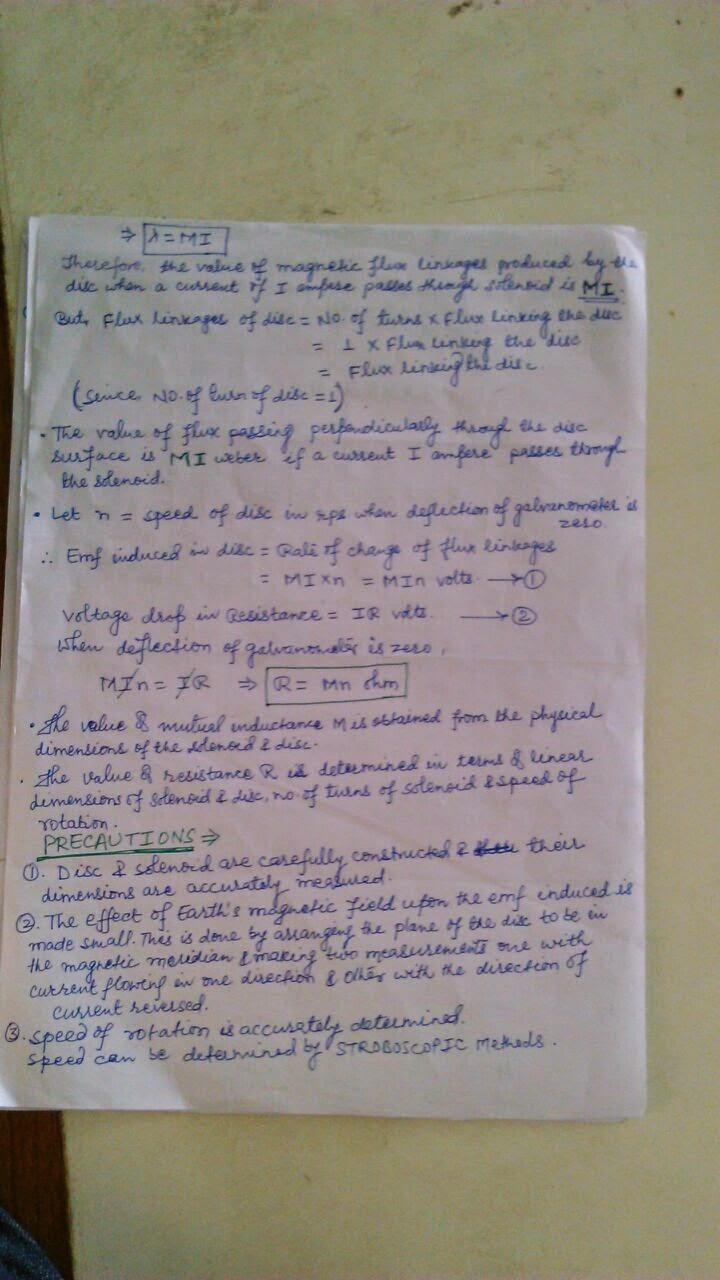 ⇒ λ = MI
Therefore, the value of magnetic flux linkages produced by the
disc when a current of I ampere passes through solenoid is MI.
But, Flux linkages of disc = No. of turns x Flux linking the disc
= 1 x Flux linking the disc
= Flux linking the disc.
(Since, No. of turn of disc = 1)
• The value of flux passing perpendicularly through the disc
surface is MI weber if a current I ampere passes through
the solenoid.
• Let n = speed of disc in rps when deflection of galvanometer is
zero.
∴ Emf induced in disc = Rate of change of flux linkages
= MI x n = MIn volts. → ①
Voltage drop in Resistance = IR volts. → ②
When deflection of galvanometer is zero,
MIn = IR ⇒ R = Mn ohm
• The value of mutual inductance M is obtained from the physical
dimensions of the solenoid & disc.
• The value of resistance R is determined in terms of linear
dimensions of solenoid & disc, no. of turns of solenoid & speed of
rotation.
PRECAUTIONS ⇒
①. Disc & solenoid are carefully constructed & their
dimensions are accurately measured.
②. The effect of Earth's magnetic field upon the emf induced is
made small. This is done by arranging the plane of the disc to be in
the magnetic meridian & making two measurements one with
current flowing in one direction & Other with the direction of
current reversed.
③. Speed of rotation is accurately determined.
Speed can be determined by STROBOSCOPIC Methods.